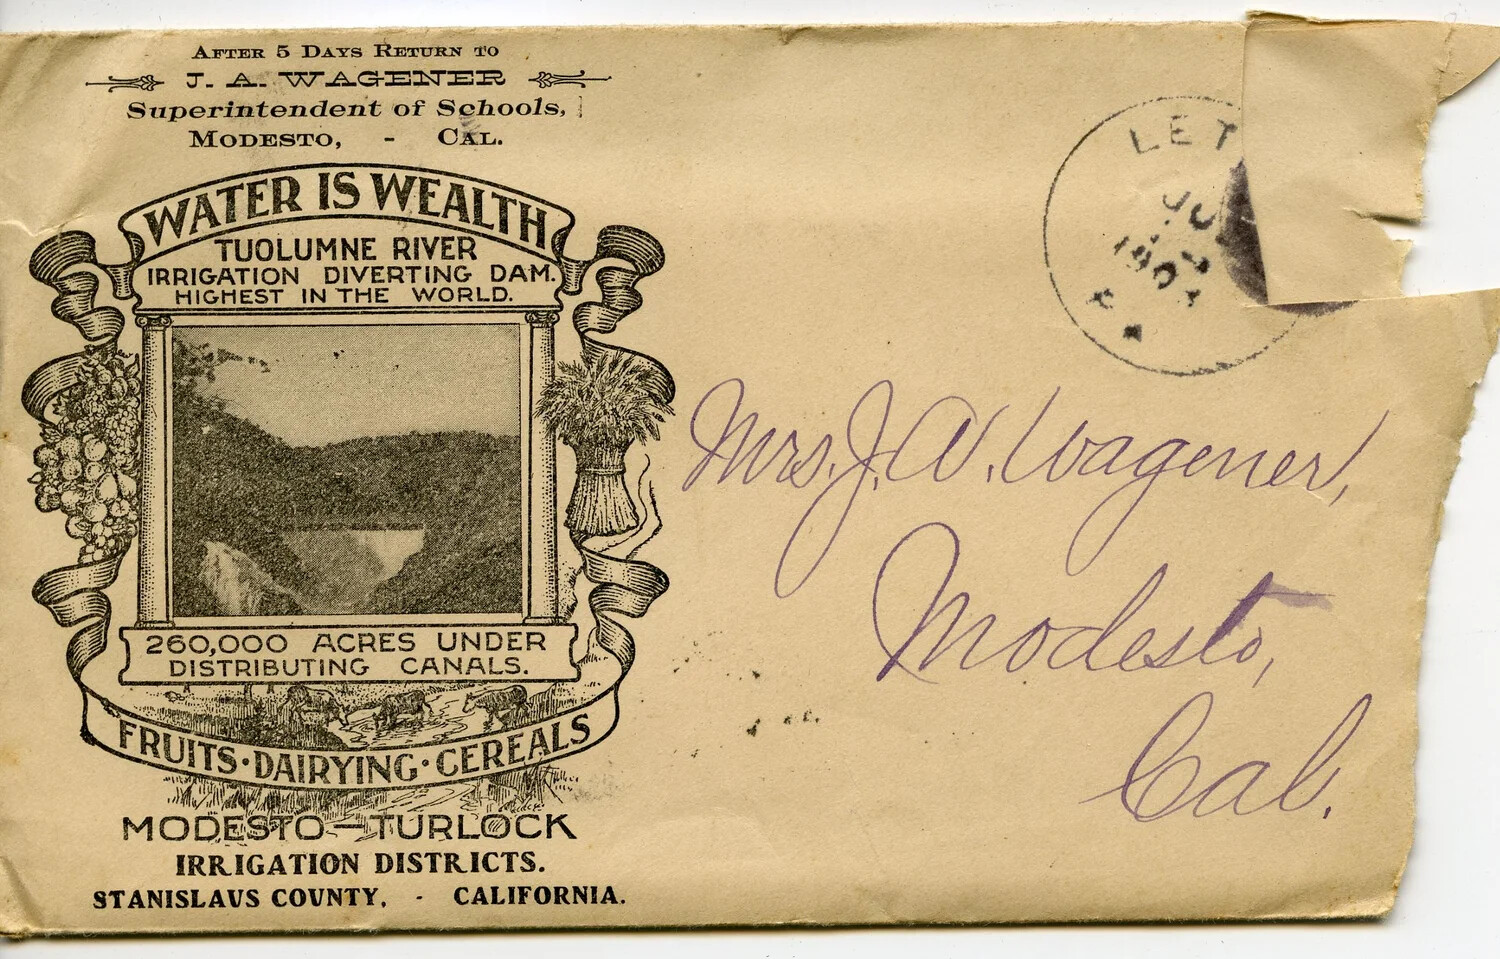 AFTER 5 DAYS RETURN TO
J. A. WAGENER
Superintendent of Schools,
MODESTO, - CAL.
WATER IS WEALTH
TUOLUMNE RIVER
IRRIGATION DIVERTING DAM.
HIGHEST IN THE WORLD.
260,000 ACRES UNDER
DISTRIBUTING CANALS.
FRUITS·DAIRYING·CEREALS
MODESTO—TURLOCK
IRRIGATION DISTRICTS.
STANISLAUS COUNTY, - CALIFORNIA.
LET
Mrs. J. A. Wagener,
Modesto,
Cal.